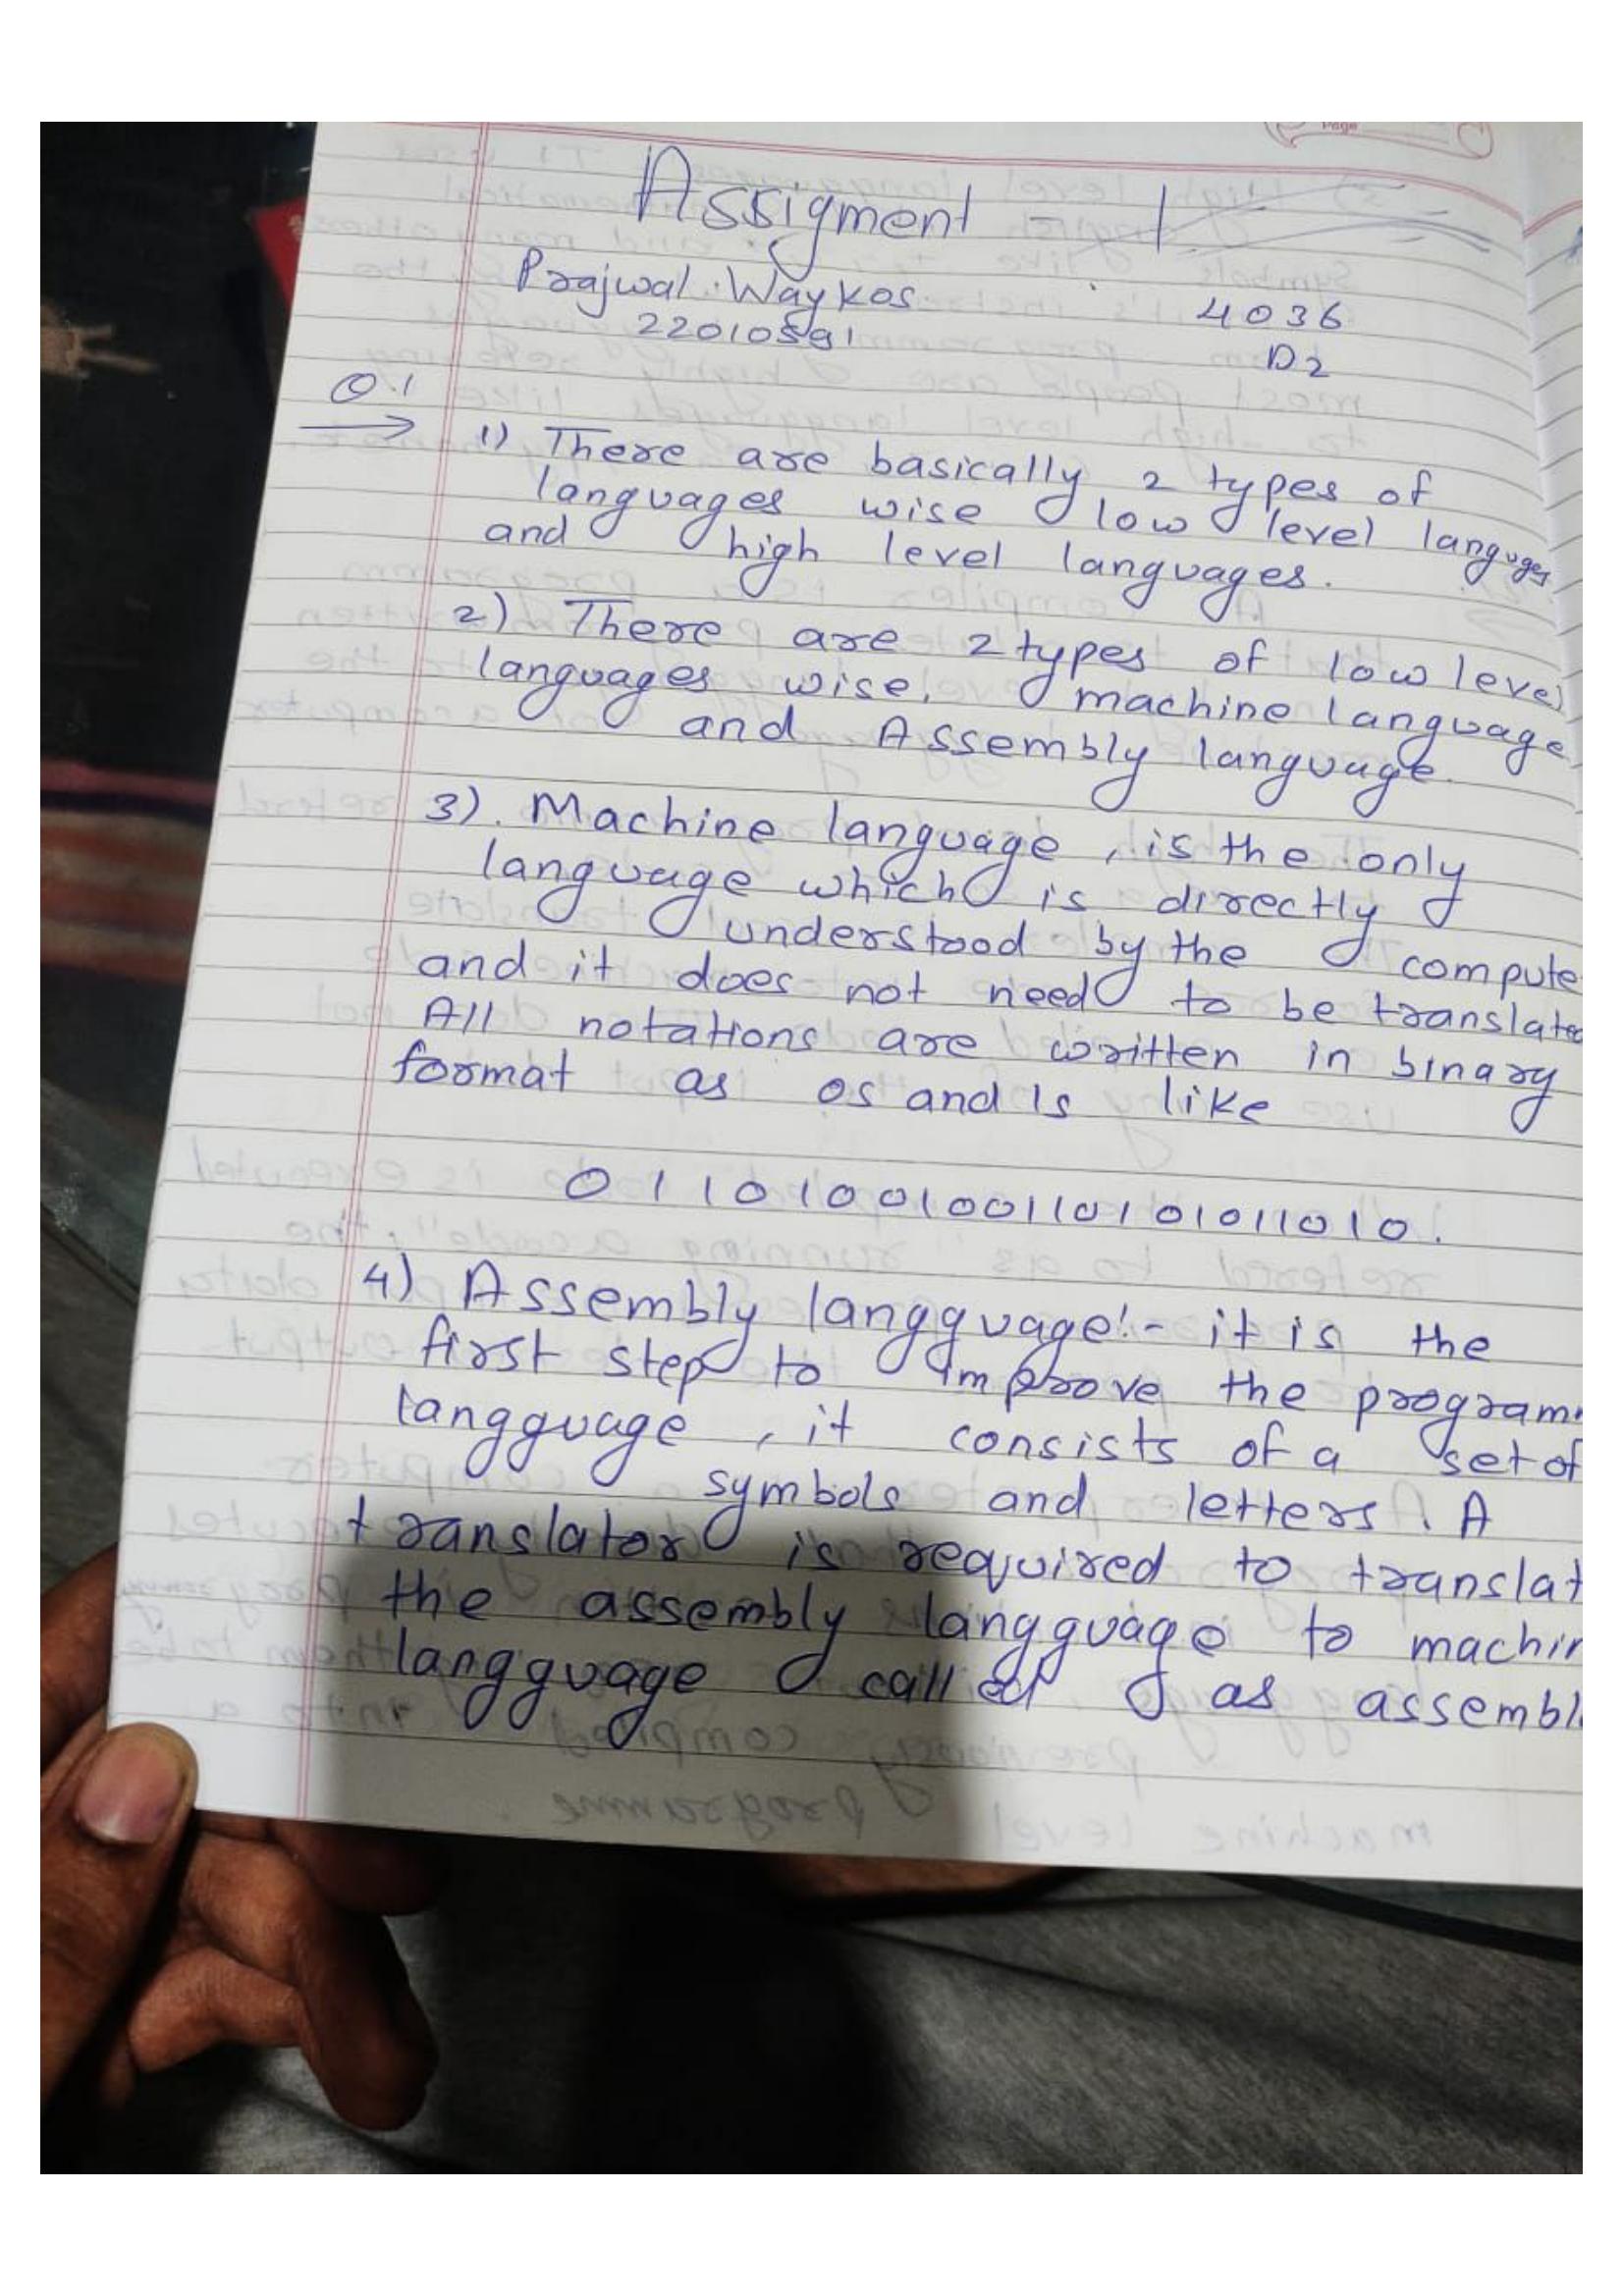 Page
Assigment - 1
Prajwal Waykos 4036
D2
Q.1
1) There are basically 2 types of
languages wise low level languges
and high level languages.
2) There are 2 types of low level
languages wise, machine language
and Assembly language.
3). Machine language, is the only
language which is directly
understood by the compute
and it does not need to be translated
All notations are written in binary
format as 0s and 1s like
4) Assembly langguage:- it is the
first step to improve the programm
langguage, it consists of a set of
symbols and letters. A
translator is required to translat
the assembly langguage to machin
langguage called as assembl